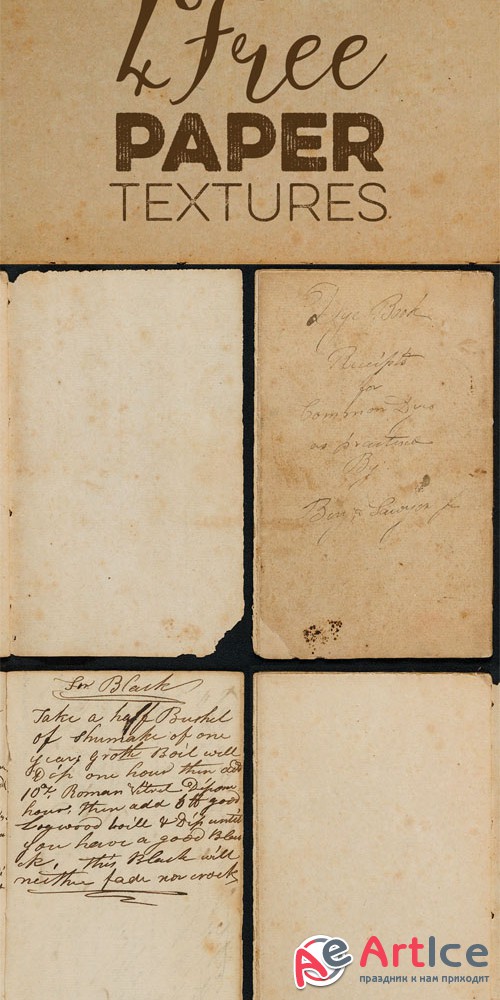 4 Free
PAPER
TEXTURES
Dye Book
Receipts
for
Common Dies
as practised
By
Benj Sawyer Jr
For Black
Take a half Bushel
of Shumake of one
years groth Boil will
Dip one hour then add
10oz Roman Vitrel Dip one
hour, then add 6 lb good
Logwood boill & Dip until
you have a good Blac
ck, this Black will
neither fade nor crock
ArtIce
праздник к нам приходит